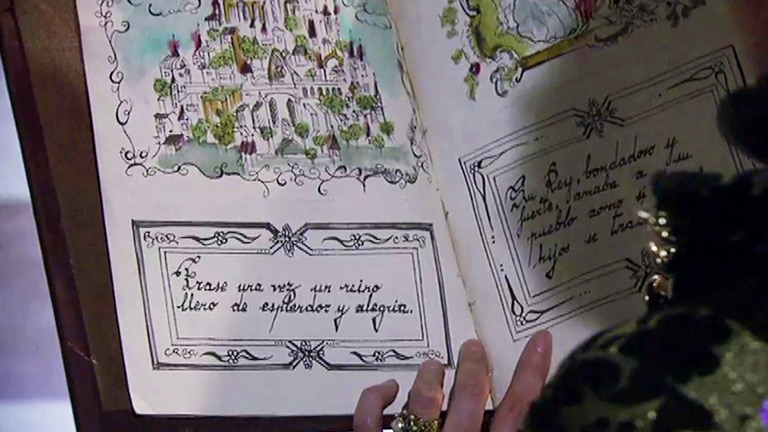 Érase una vez un reino
lleno de esplendor y alegría.
Su Rey, bondadoso y
fuerte, amaba a su
pueblo como si
hijos se tra